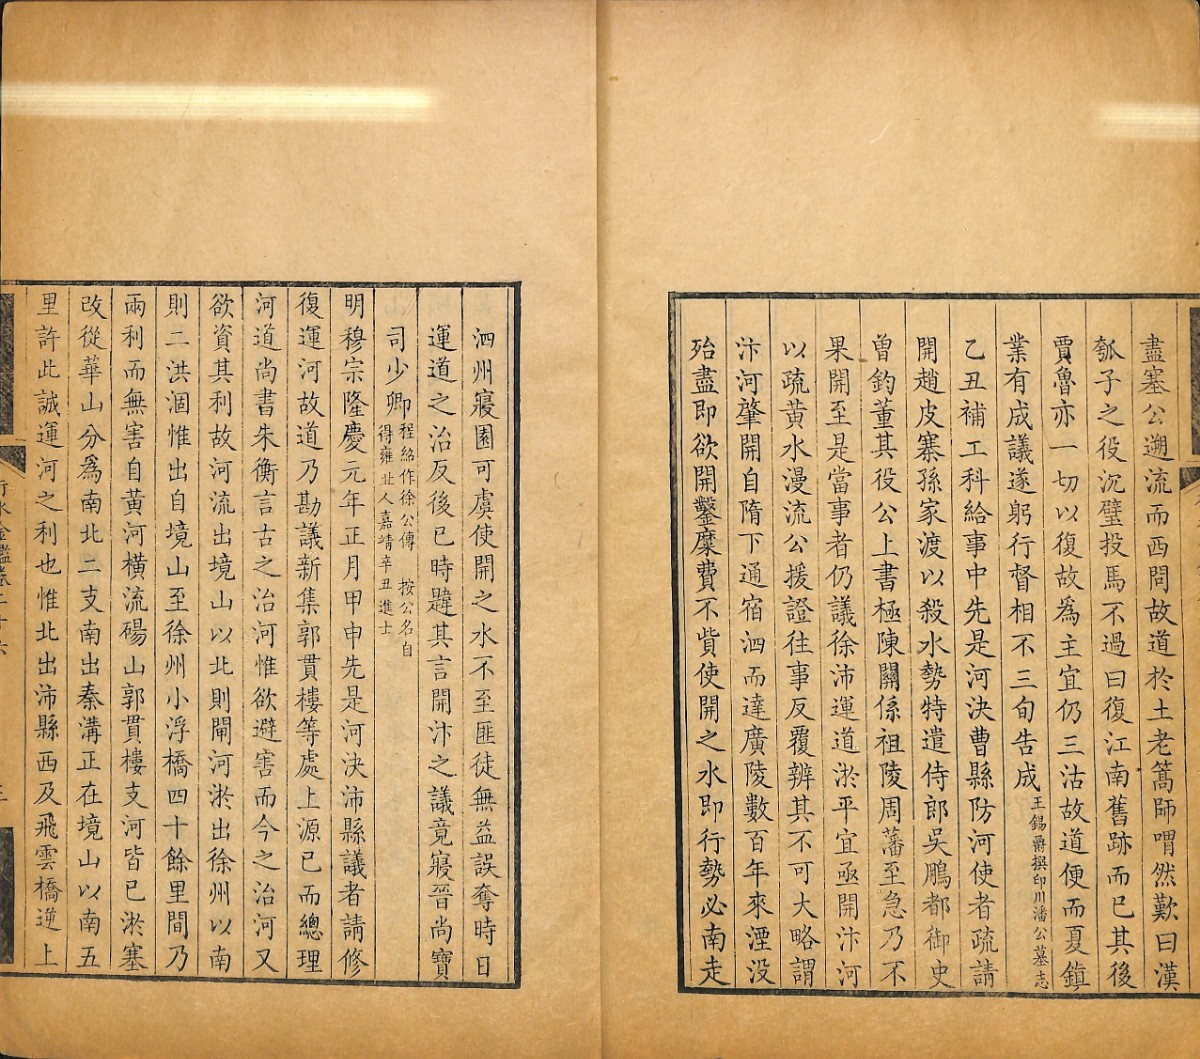 盡塞公遡流而西問故道於土老篙師喟然歎曰漢
瓠子之役沉璧投馬不過曰復江南舊跡而已其後
賈魯亦一切以復故爲主宜仍三沽故道便而夏鎮
業有成議遂躬行督相不三旬告成王錫爵撰印川潘公墓志
乙丑補工科給事中先是河決曹縣防河使者疏請
開趙皮寨孫家渡以殺水勢特遣侍郎吳鵬都御史
曾鈞董其役公上書極陳關係祖陵周藩至急乃不
果開至是當事者仍議徐沛運道淤平宜亟開汴河
以疏黃水漫流公援證往事反覆辨其不可大略謂
汴河肇開自隋下通宿泗而達廣陵數百年來湮没
殆盡即欲開鑿糜費不貲使開之水即行勢必南走
泗州寢園可虞使開之水不至匪徒無益誤奪時日
運道之治反後已時韙其言開汴之議竟寢晉尚寶
司少卿程紹作徐公傳 按公名自得雍丘人嘉靖辛丑進士
明穆宗隆慶元年正月甲申先是河決沛縣議者請修
復運河故道乃勘議新集郭貫樓等處上源已而總理
河道尚書朱衡言古之治河惟欲避害而今之治河又
欲資其利故河流出境山以北則閘河淤出徐州以南
則二洪涸惟出自境山至徐州小浮橋四十餘里間乃
兩利而無害自黃河橫流碭山郭貫樓支河皆已淤塞
改從華山分爲南北二支南出秦溝正在境山以南五
里許此誠運河之利也惟北出沛縣西及飛雲橋逆上
行水金鑑卷二十六